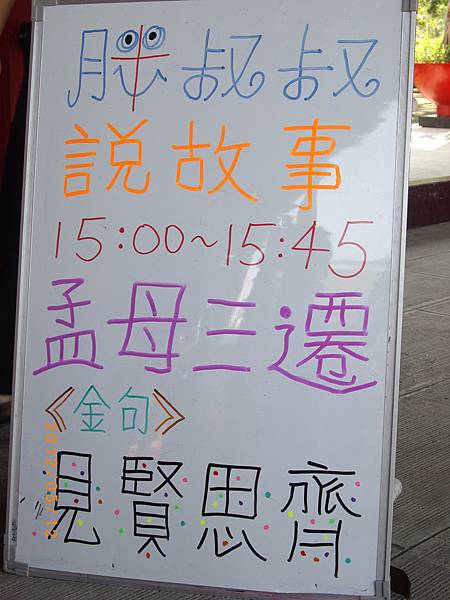 胖叔叔
説故事
15:00~15:45
孟母三遷
《金句》
見賢思齊
2012/05/12